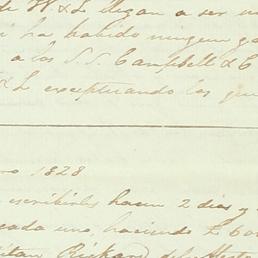 de W & L llegan a ser
ha habido ningun
a los S. S. Campbell & C
& L exceptuando los
ro 1828
escribirles hacen 2 dias y
cada uno, haciendo
Rickard del